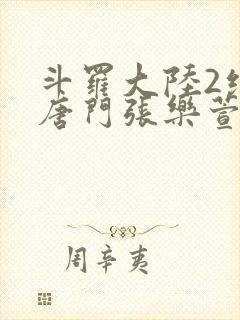 斗羅大陸2
唐門張樂萱
周辛夷